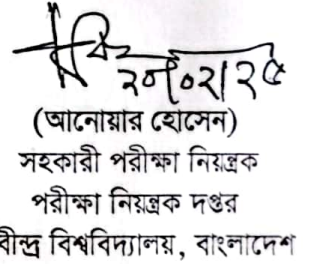 ২০/০২/২৫
(আনোয়ার হোসেন)
সহকারী পরীক্ষা নিয়ন্ত্রক
পরীক্ষা নিয়ন্ত্রক দপ্তর
বীন্দ্র বিশ্ববিদ্যালয়, বাংলাদেশ